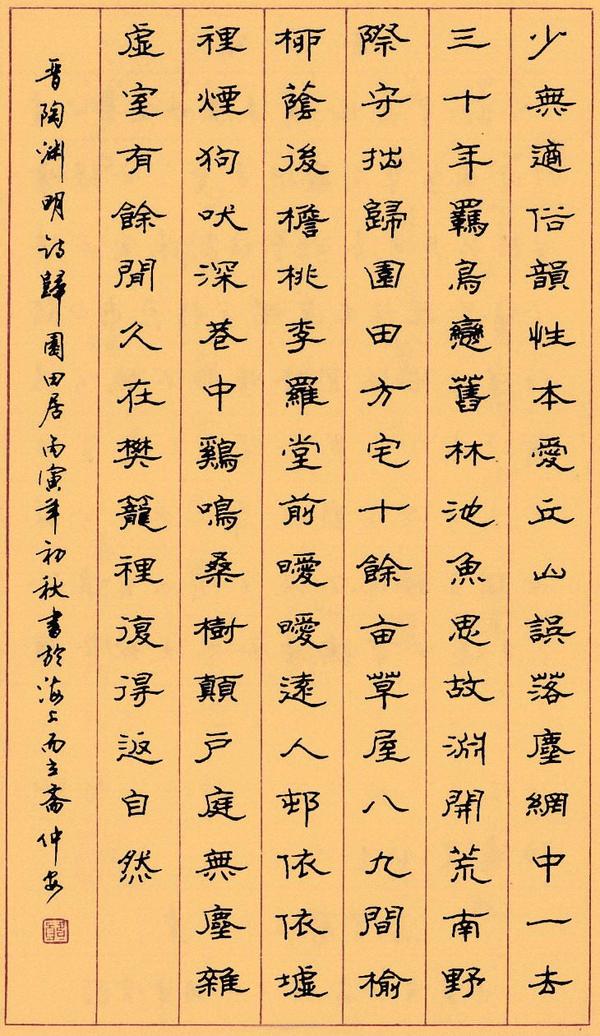 少無適俗韻性本愛丘山誤落塵網中一去
三十年羈鳥戀舊林池魚思故淵開荒南野
際守拙歸園田方宅十餘亩草屋八九間榆
柳蔭後檐桃李羅堂前曖曖遠人邨依依墟
裡煙狗吠深巷中鷄鳴桑樹顛戶庭無塵雜
虛室有餘閒久在樊籠裡復得返自然
晋陶渊明诗歸園田居丙寅年初秋書於海上而立斋仲安